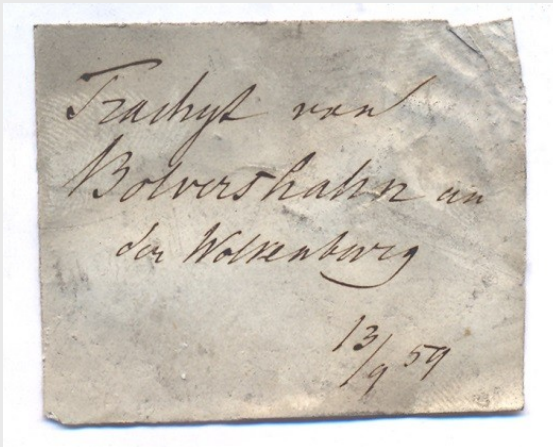 Trachyt von
Bolvershahn an
der Wolkenberg
13/9 59